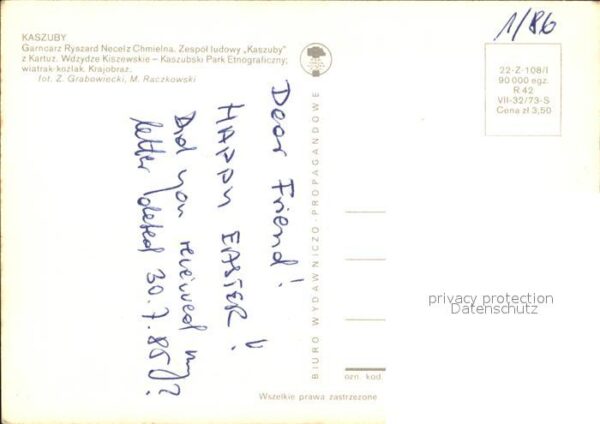 KASZUBY
Garncarz Ryszard Necel z Chmielna. Zespół ludowy „Kaszuby"
z Kartuz. Wdzydze Kiszewskie – Kaszubski Park Etnograficzny;
wiatrak-koźlak. Krajobraz.
fot. Z. Grabowiecki, M. Raczkowski
1/86
22-Z-108/I
90 000 egz.
R 42
VII-32/73-S
Cena zł 3,50
Dear Friend!
HAPPY EASTER!
Did you received my
letter dated 30.7.85?
BIURO WYDAWNICZO-PROPAGANDOWE
privacy protection
Datenschutz
ozn. kod
Wszelkie prawa zastrzeżone